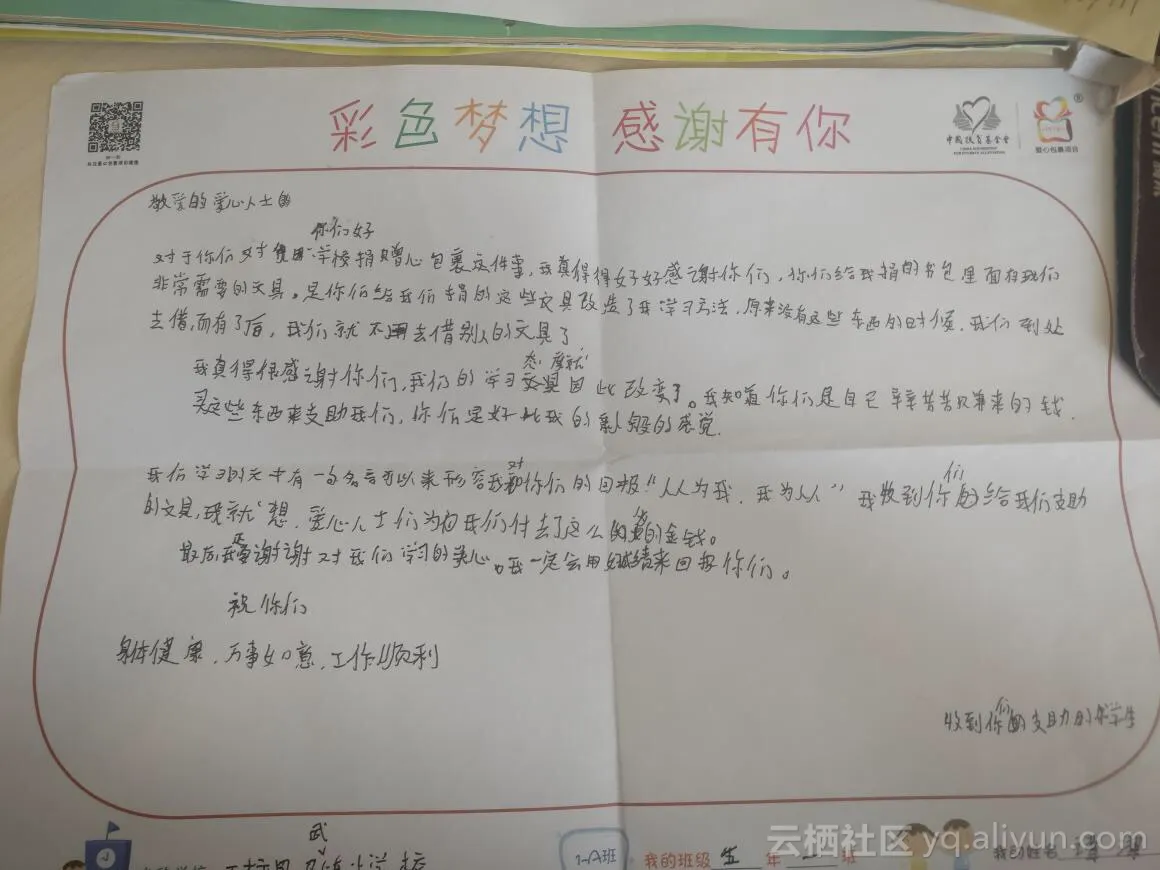 彩色梦想 感谢有你
中国扶贫基金会
爱心包裹项目
敬爱的爱心人士
你们好
对于你们对 学校捐赠心包裹这件事,我真得得好好感谢你们,你们给我捐的书包里面有我们
非常需要的文具。是你们给我们捐的这些文具改造了我学习方法,原来没有这些东西的时候,我们到处
去借,而有了后,我们就不用去借别人的文具了
态度就
我真得很感谢你们,我们的学习 因此改变了。我知道你们是自己辛辛苦苦赚来的钱.
买这些东西来支助我们,你们是好比我的 的感觉.
我们学习的 中有一句名言可以来形容我对你们的回报“人人为我,我为人人”我收到你们给我们支助
的文具,我就想,爱心人士们为何我们付去了这么 的金钱。
最后我 谢谢对我们学习的关心。我一定会用 结果来回报你们。
祝你们
身体健康,万事如意,工作顺利
收到你们 支助的 学生
武
我的班级 五 年 二 班
我的姓名
云栖社区 yq.aliyun.com